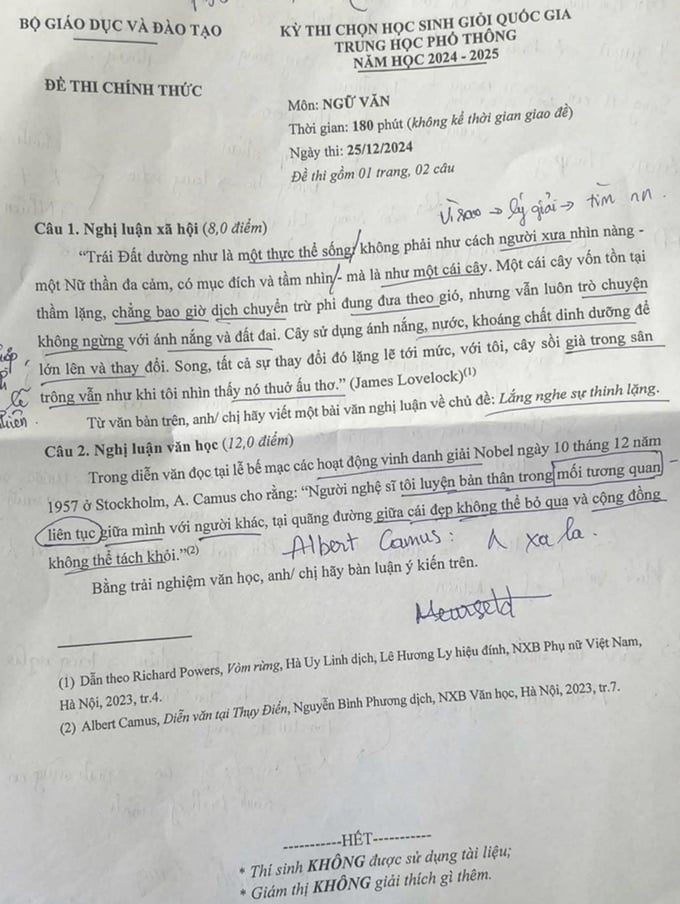 BỘ GIÁO DỤC VÀ ĐÀO TẠO
ĐỀ THI CHÍNH THỨC
KỲ THI CHỌN HỌC SINH GIỎI QUỐC GIA
TRUNG HỌC PHỔ THÔNG
NĂM HỌC 2024 - 2025
Môn: NGỮ VĂN
Thời gian: 180 phút (không kể thời gian giao đề)
Ngày thi: 25/12/2024
Đề thi gồm 01 trang, 02 câu
Vì sao → lý giải → tìm nn.
Câu 1. Nghị luận xã hội (8,0 điểm)
“Trái Đất dường như là một thực thể sống, không phải như cách người xưa nhìn nàng -
một Nữ thần đa cảm, có mục đích và tầm nhìn - mà là như một cái cây. Một cái cây vốn tồn tại
thầm lặng, chẳng bao giờ dịch chuyển trừ phi đung đưa theo gió, nhưng vẫn luôn trò chuyện
không ngừng với ánh nắng và đất đai. Cây sử dụng ánh nắng, nước, khoáng chất dinh dưỡng để
lớn lên và thay đổi. Song, tất cả sự thay đổi đó lặng lẽ tới mức, với tôi, cây sồi già trong sân
trông vẫn như khi tôi nhìn thấy nó thuở ấu thơ.” (James Lovelock)(1)
Từ văn bản trên, anh/ chị hãy viết một bài văn nghị luận về chủ đề: Lắng nghe sự thinh lặng.
Câu 2. Nghị luận văn học (12,0 điểm)
Trong diễn văn đọc tại lễ bế mạc các hoạt động vinh danh giải Nobel ngày 10 tháng 12 năm
1957 ở Stockholm, A. Camus cho rằng: “Người nghệ sĩ tôi luyện bản thân trong mối tương quan
liên tục giữa mình với người khác, tại quãng đường giữa cái đẹp không thể bỏ qua và cộng đồng
không thể tách khỏi.”(2)
Albert Camus: xa la.
Bằng trải nghiệm văn học, anh/ chị hãy bàn luận ý kiến trên.
(1) Dẫn theo Richard Powers, Vòm rừng, Hà Uy Linh dịch, Lê Hương Ly hiệu đính, NXB Phụ nữ Việt Nam,
Hà Nội, 2023, tr.4.
(2) Albert Camus, Diễn văn tại Thụy Điển, Nguyễn Bình Phương dịch, NXB Văn học, Hà Nội, 2023, tr.7.
-----------HẾT-----------
* Thí sinh KHÔNG được sử dụng tài liệu;
* Giám thị KHÔNG giải thích gì thêm.